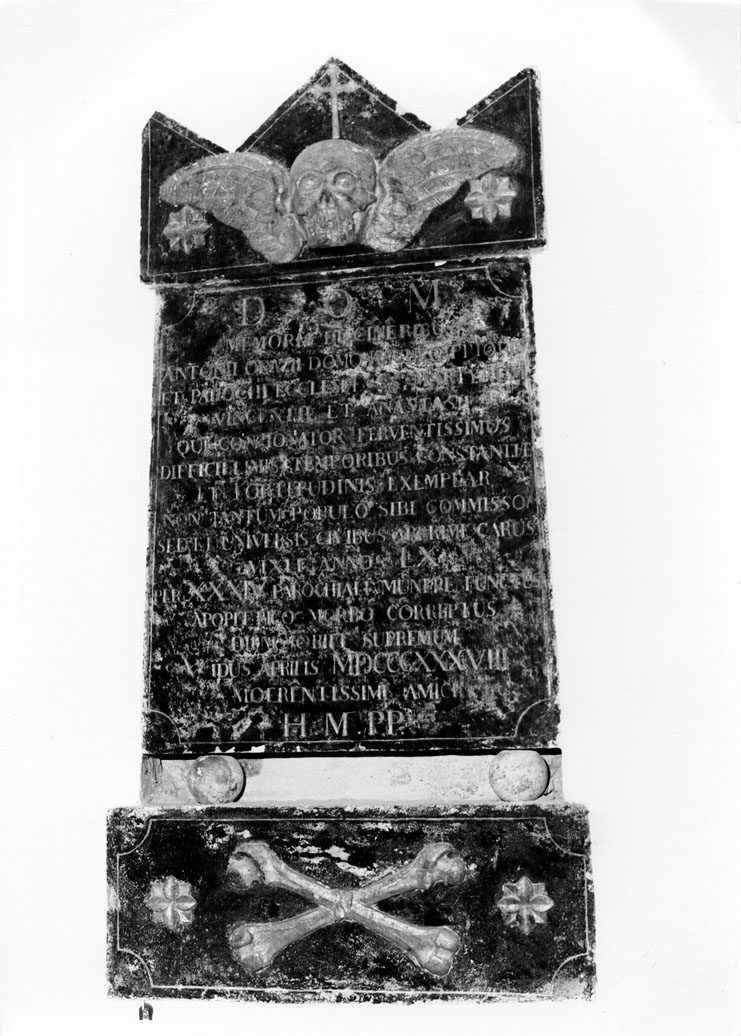 D O M
MEMORIÆ ET CINERIBUS
ANTONII
ET PAROCHI ECCLESIÆ
VINCENTII ET ANASTASII
QUI CONCIONATOR FERVENTISSIMUS
DIFFICILLIMIS TEMPORIBUS CONSTANTIÆ
ET FORTITUDINIS EXEMPLAR
NON TANTUM POPULO SIBI COMMISSO
SED ET UNIVERSIS CIVIBUS APPRIME CARUS
VIXIT ANNOS
PER XXXIV PAROCHIALE MUNERE FUNCTUS
APOPLETICO MORBO CORREPTUS
DIEM OBIIT SUPREMUM
IDUS APRILIS MDCCCXXXVIII
MOERENTISSIMI AMICI
H M PP